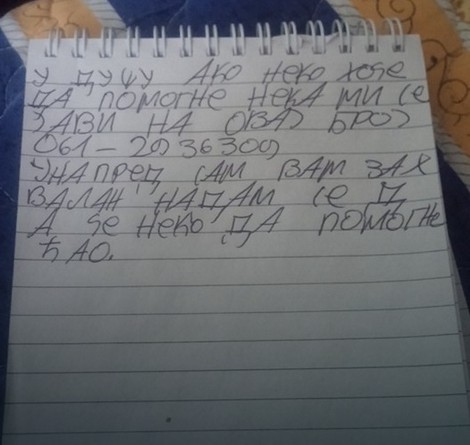 У ДУЧУ АКО НЕКО ХОЂЕ
ДА ПОМОГНЕ НЕКА МИ СЕ
ЈАВИ НА ОВАЈ БРОЈ
061-2936309
УНАПРЕД САМ ВАМ ЗАХ
ВАЛАН НАДАМ СЕ Д
А ЂЕ НЕКО ДА ПОМОГНЕ
ЋАО.